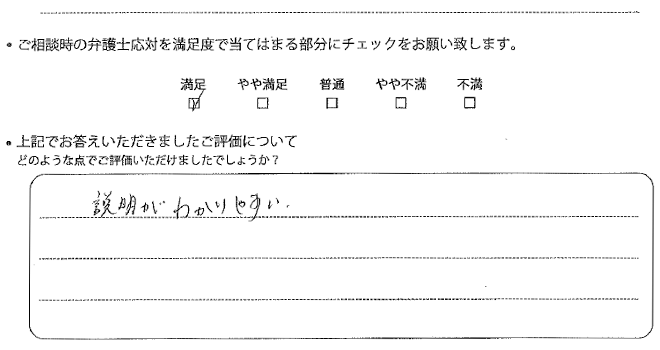 ・ご相談時の弁護士応対を満足度で当てはまる部分にチェックをお願い致します。
満足 やや満足 普通 やや不満 不満
☑ □ □ □ □
・上記でお答えいただきましたご評価について
どのような点でご評価いただけましたでしょうか？
説明がわかりやすい.